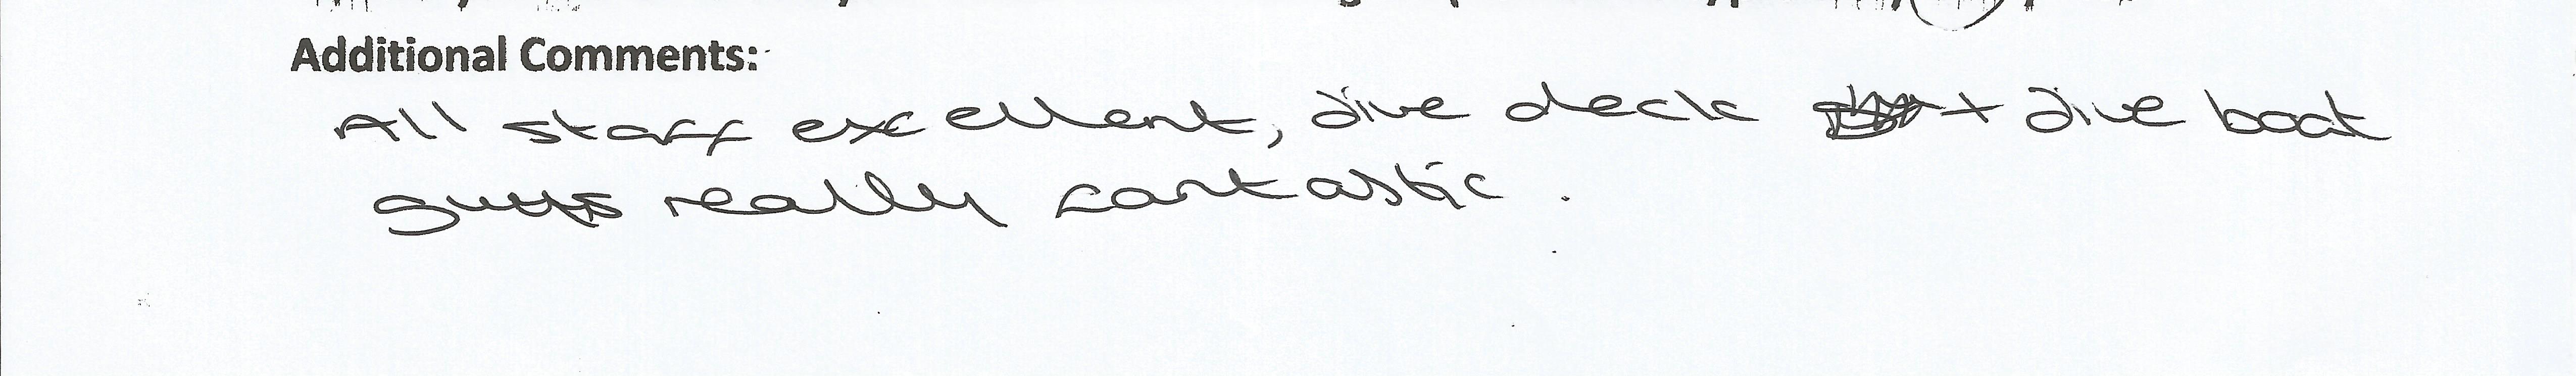 Additional Comments:
All staff excellent, dive deck + dive boat
guys really fantastic.